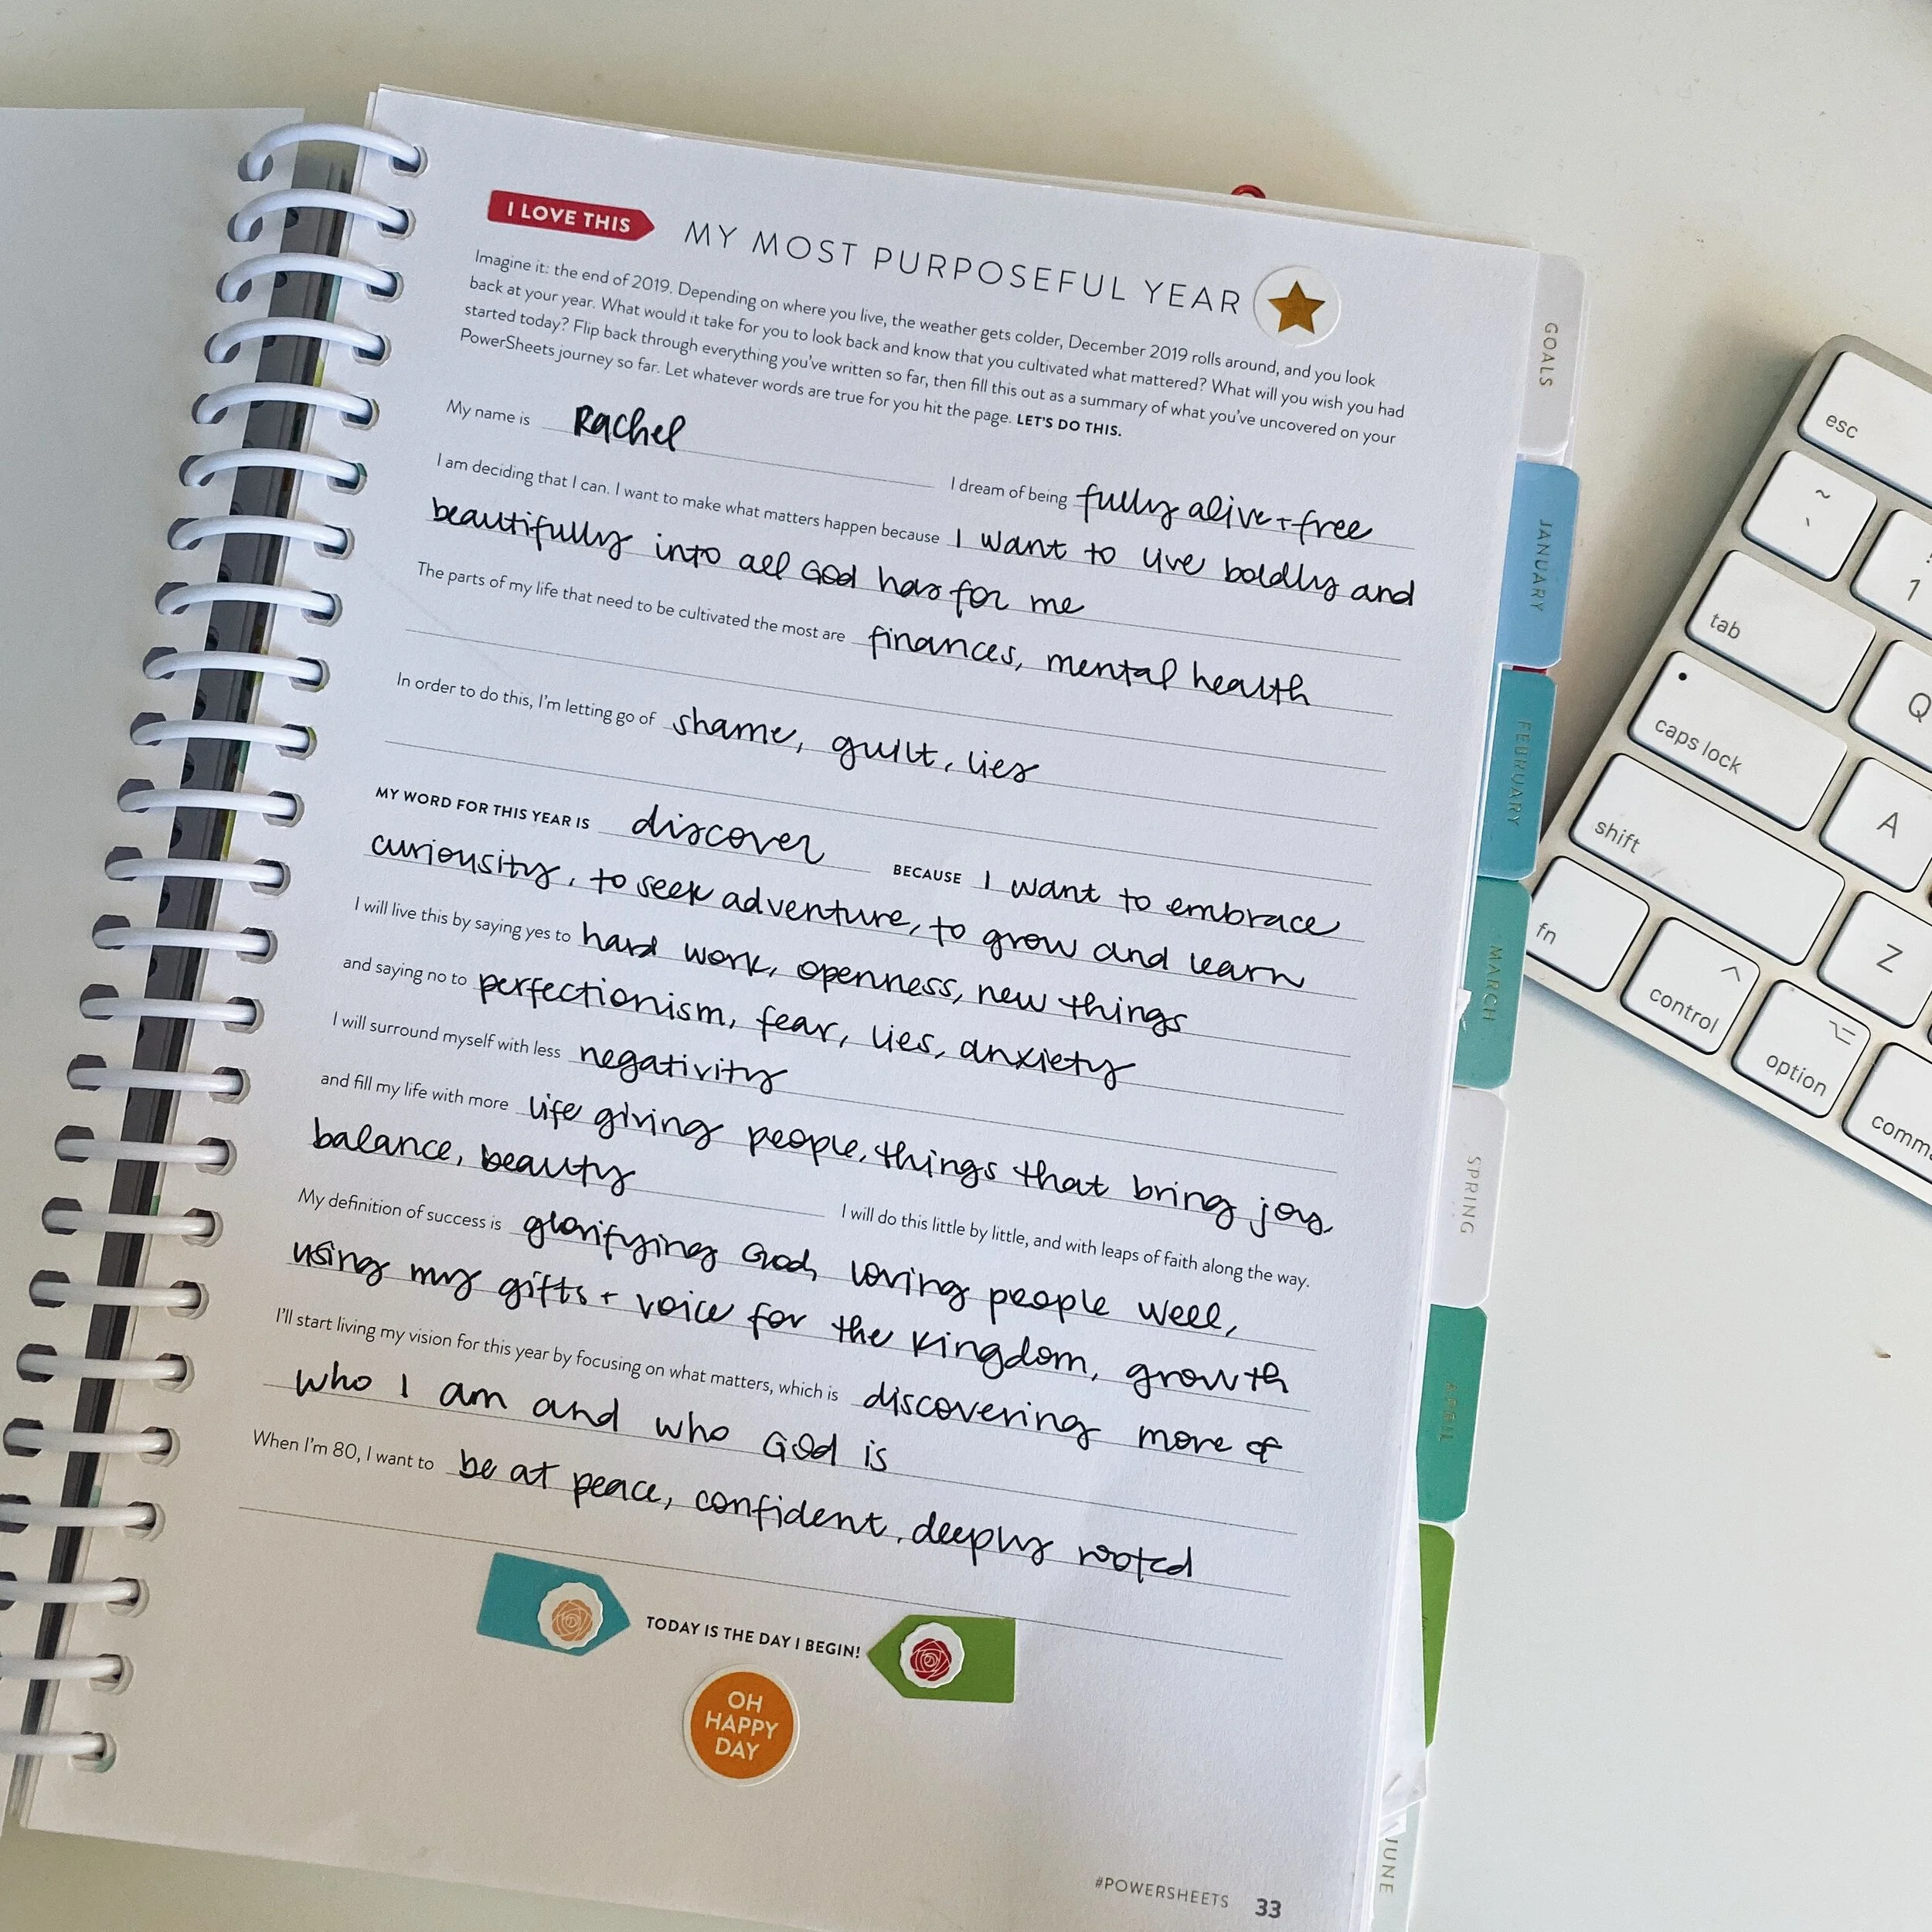 I LOVE THIS
MY MOST PURPOSEFUL YEAR
Imagine it: the end of 2019. Depending on where you live, the weather gets colder, December 2019 rolls around, and you look
back at your year. What would it take for you to look back and know that you cultivated what mattered? What will you wish you had
started today? Flip back through everything you've written so far, then fill this out as a summary of what you've uncovered on your
PowerSheets journey so far. Let whatever words are true for you hit the page. LET'S DO THIS.
My name is Rachel I dream of being fully alive + free
I am deciding that I can. I want to make what matters happen because I want to live boldly and
beautifully into all God has for me
The parts of my life that need to be cultivated the most are finances, mental health
In order to do this, I'm letting go of shame, guilt, lies
MY WORD FOR THIS YEAR IS discover BECAUSE I want to embrace
curiousity, to seek adventure, to grow and learn
I will live this by saying yes to hard work, openness, new things
and saying no to perfectionism, fear, lies, anxiety
I will surround myself with less negativity
and fill my life with more life giving people, things that bring joy,
balance, beauty I will do this little by little, and with leaps of faith along the way.
My definition of success is glorifying God, loving people well,
using my gifts + voice for the Kingdom, growth
I'll start living my vision for this year by focusing on what matters, which is discovering more of
who I am and who God is
When I'm 80, I want to be at peace, confident, deeply rooted
TODAY IS THE DAY I BEGIN!
OH
HAPPY
DAY
#POWERSHEETS 33
GOALS
JANUARY
FEBRUARY
MARCH
SPRING
APRIL
JUNE
esc
~
` 1
tab Q
caps lock A
shift Z
fn control option